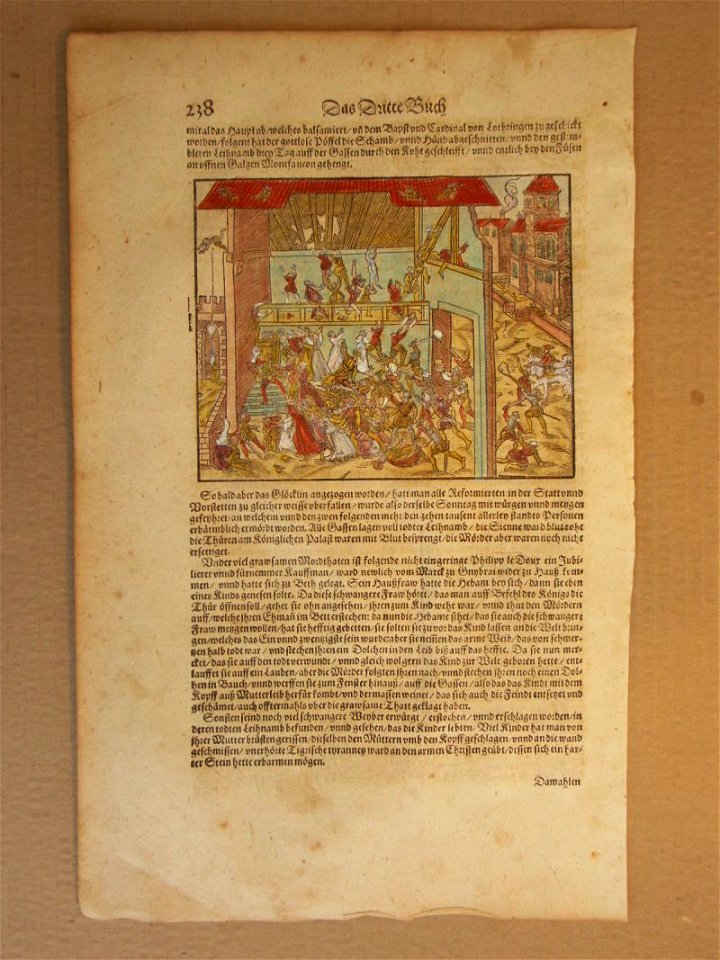 238 Das Dritte Buch
mit al das Haupt ab/welches balsamiert/ vñ dem Bapst vnd Cardinal von Lothringen zugeschickt
worden/folgent hat der gottlose Pöffel die Schamb/ vnnd Händ abgeschnitten/ vnnd den gestim-
bleten Leihnamb drey Tag auff der Gassen durch den Koht geschleifft/ vnnd entlich bey den Füsen
an offnen Galgen Monfaucon gehengt.
So bald aber das Glöcklin angezogen worden/ hatt man alle Reformierten in der Statt vnnd
Vorstetten zu gleicher weisse vberfallen/ wurde also derselbe Sonntag mit würgen vnnd metzgen
gefeyhret/ an welchem vnnd den zwen folgenden mehr den zehen tausent allerley standts Personen
erbärmblich ermördt worden. Alle Gassen lagen voll todter Leihnamb/ die Sienne ward blutroht
die Thüren am Königlichen Palast waren mit Blut besprengt/ die Mörder aber waren noch nicht
ersettiget.
Vnder viel grawsamen Mordthaten ist folgende nicht ein geringe Philipp le Doux ein Jubi-
lierer vnnd fürnemmer Kauffman/ ward newlich vom Marck zu Guybrai wider zu Hauß kom-
men/ vnnd hatte sich zu Beth gelegt. Sein Haußfraw hatte die Hebam bey sich/ dann sie eben
eines Kinds genesen solte. Da diese schwangere Fraw hört/ das man auff Befehl des Königs die
Thür öffnen soll/ gehet sie ohn angesehen/ ihren zum Kind wehe war/ vnnd thut den Mördern
auff/ welche ihren Ehman im Bett erstechen: da nun die Hebame sihet/ das sie auch die schwangere
Fraw metzgen wollen/ hat sie hefftig gebetten/ sie solten sie zuvor das Kind lassen an die Welt brin-
gen/welches das Ein vnnd zwentzigste sein wurde: aber sie nemmen das arme Weib/ das von schmer-
tzen halb todt war/ vnd stechen ihren ein Dolchen in den Leib biß auff das heffte. Da sie nun mer-
cket/ das sie auff den todt verwundt/ vnnd gleich wol gern das Kind zur Welt geboren hette/ ent-
lauffet sie auff ein Lauben/ aber die Mörder folgten ihren nach/ vnnd stechen ihren noch einen Dol-
chen in Bauch/ vnnd werffen sie zum Fenster hinauß/ auff die Gassen/ also das das Kindt mit dem
Kopff auß Mutterleib herfür kombt/ vnd dermassen weinet/ das sich auch die Feindt entsetzet vnd
geschämet/ auch offtermahls vber die grawsame Thatt geklagt haben.
Sonsten seind noch viel schwangere Weyber erwürgt/ erstochen/ vnnd erschlagen worden/ in
deren todten Leihnamb befunden/ vnnd gesehen/ das die Kinder lebten. Viel Kinder hat man von
ihrer Mutter brüsten gerissen/ dieselben den Müttern vmb den Kopff geschlagen/ vnnd an die wand
geschmissen/ vnerhörte Tigrische tyranney ward an den armen Christen geübt/ dessen sich ein har-
ter Stein hette erbarmen mögen.
Damahlen